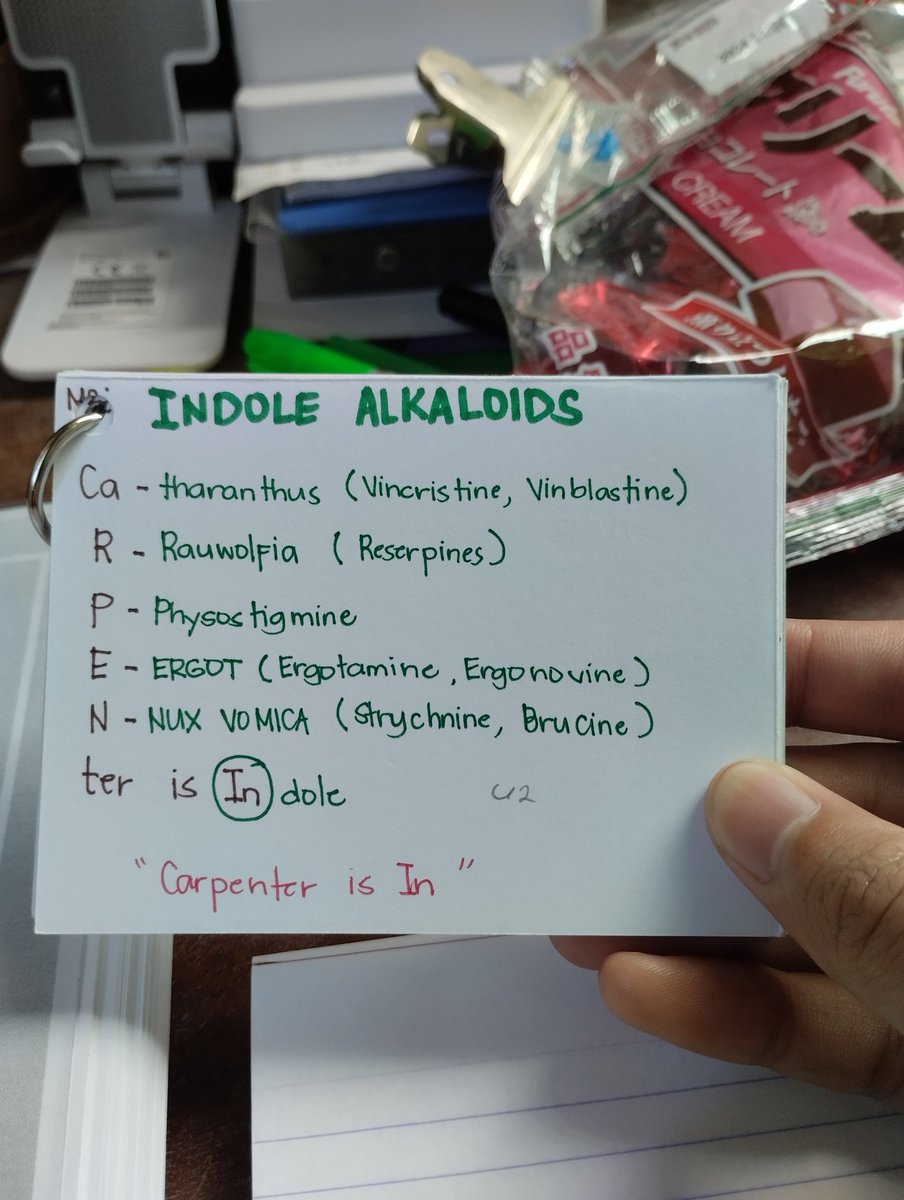 INDOLE ALKALOIDS
Ca - tharanthus (Vincristine, Vinblastine)
R - Rauwolfia (Reserpines)
P - Physostigmine
E - ERGOT (Ergotamine, Ergonovine)
N - NUX VOMICA (Strychnine, Brucine)
ter is Indole
"Carpenter is In"
CREAM